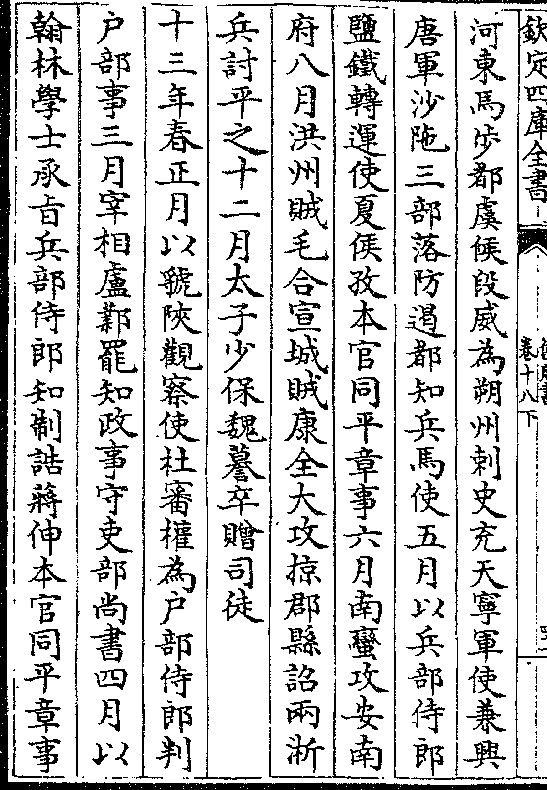 欽定四庫全書
卷十八下
河東馬步都虞候段威為朔州刺史充天寧軍使兼興
唐軍沙陁三部落防遏都知兵馬使五月以兵部侍郎
鹽鐵轉運使夏侯孜本官同平章事六月南蠻攻安南
府八月洪州賊毛合宣城賊康全大攻掠郡縣詔兩浙
兵討平之十二月太子少保魏謩卒贈司徒
十三年春正月以虢陝觀察使杜審權為戶部侍郎判
戶部事三月宰相盧鄴罷知政事守吏部尚書四月以
翰林學士承旨兵部侍郎知制誥蔣伸本官同平章事